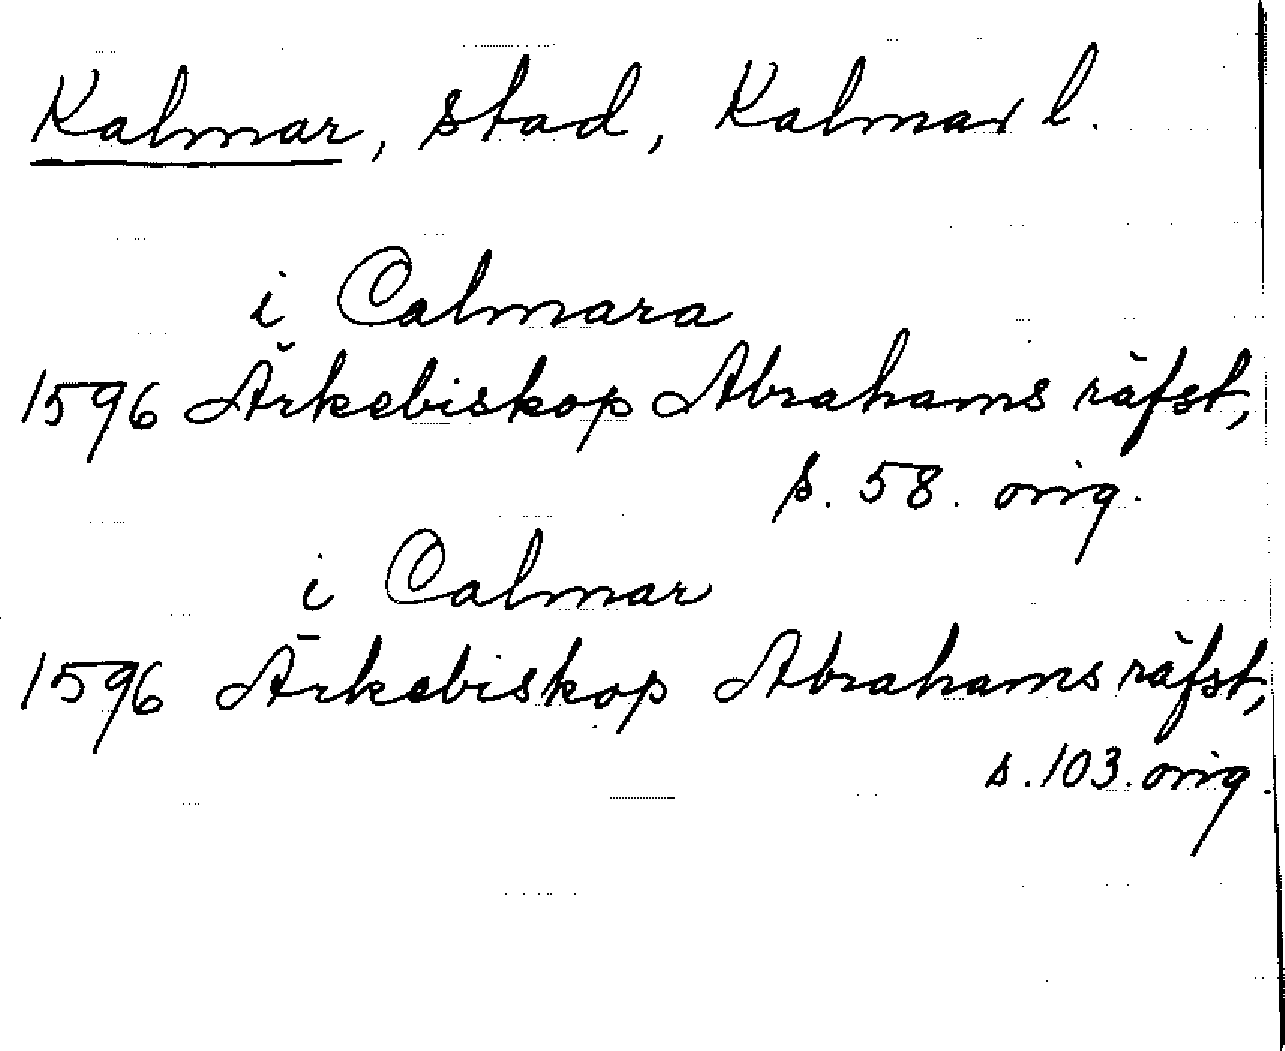 Kalmar, stad, Kalmar l.
i Calmara
1596 Ärkebiskop Abrahams räfst,
s. 58. orig.
i Calmar
1596 Ärkebiskop Abrahams räfst,
s. 103. orig.